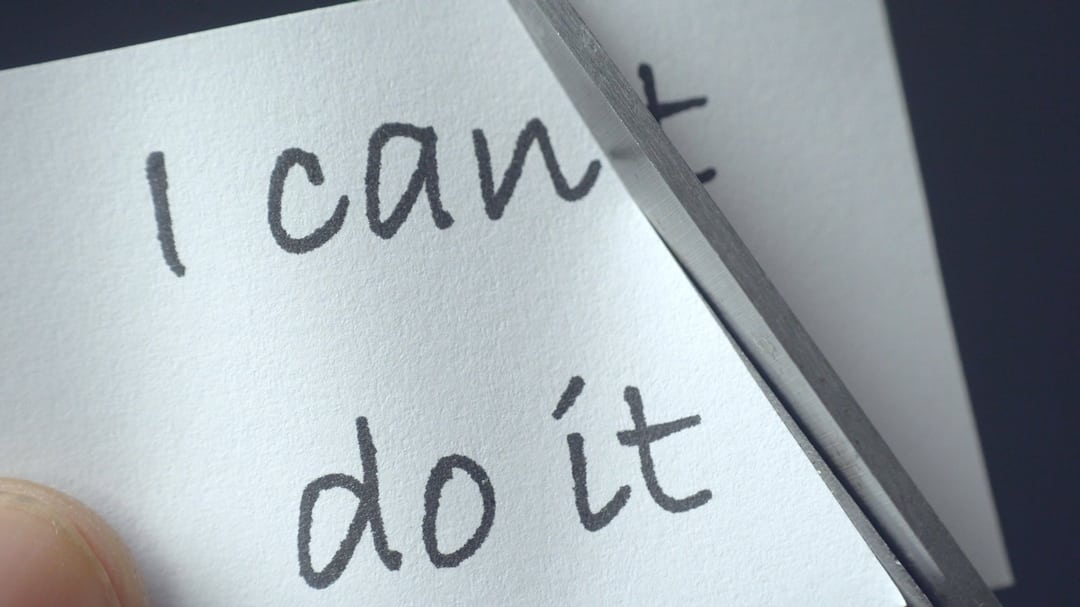 I can t
do it